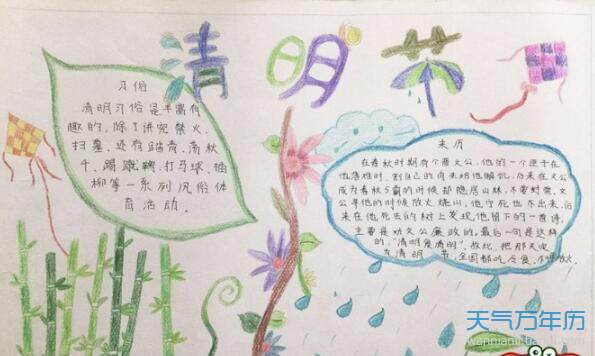 清明节
习俗
清明习俗是丰富有
趣的,除了讲究禁火、
扫墓,还有踏青、荡秋
千、踢蹴鞠、打马球、插
柳等一系列风俗体
育活动。
来历
在春秋时期有个晋文公,他的一个臣子在
他落难时、割自己的肉来给他解饥,后来在文公
成为春秋5霸的时候却隐居山林,不要封赏,文
公寻他的时候放火烧山,他宁死也不出来,后
来在他死去的树上发现他留下的一首诗,
主要是劝文公廉政的,最后一句是这
样的,“清明复清明”,故此,把那天定
为清明节,全国都吃冷食,不得放火。
天气万年历
wannianli.tianqi.com